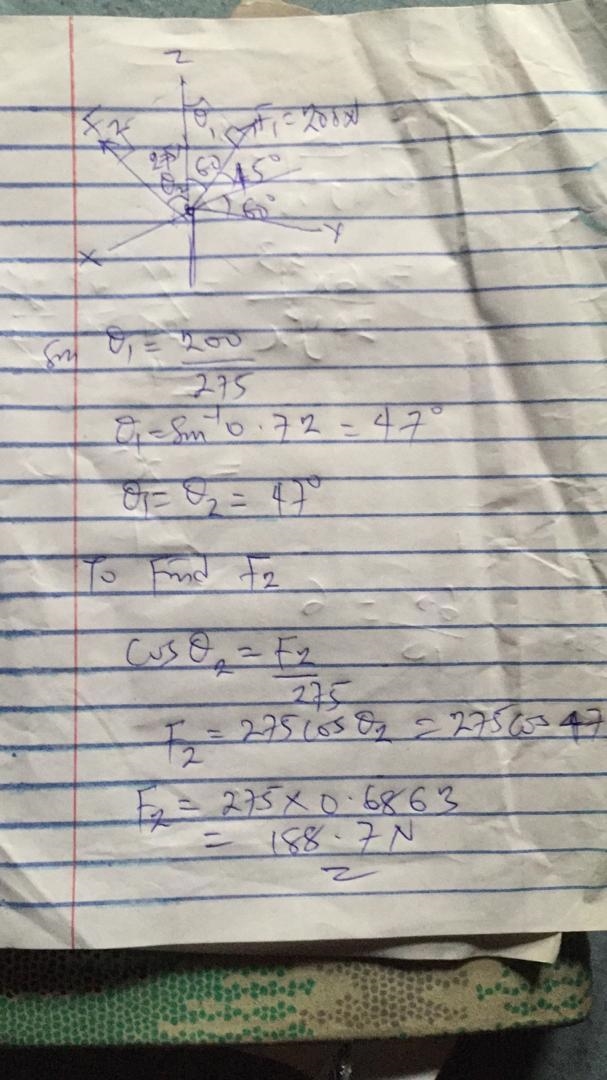 Z
F2 θ1 F1 = 200N
275 60 45°
θ2 60° Y
X
Sin θ1 = 200
275
θ1 = Sin⁻¹ 0.72 = 47°
θ1 = θ2 = 47°
To Find F2
Cos θ2 = F2
275
F2 = 275 Cos θ2 = 275 Cos 47
F2 = 275 x 0.6863
= 188.7N